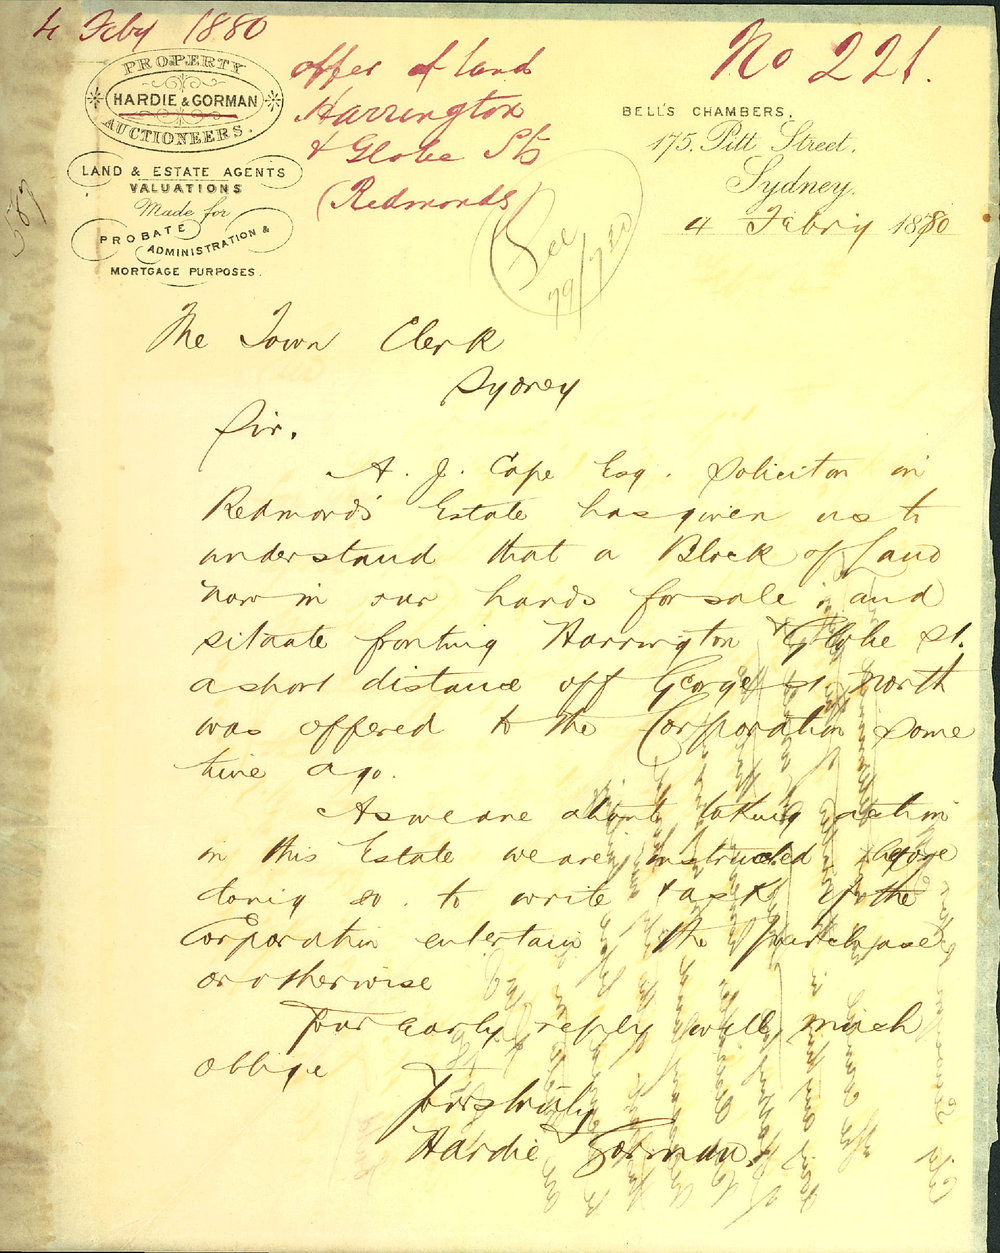 4 Feby 1880
No 221.
offer of land
Harrington
& Globe Sts
(Redmonds)
PROPERTY
HARDIE & GORMAN
AUCTIONEERS.
LAND & ESTATE AGENTS
VALUATIONS
Made for
PROBATE
ADMINISTRATION &
MORTGAGE PURPOSES.
BELL'S CHAMBERS.
175. Pitt Street.
Sydney.
4 Febry 1880
See
79/
The Town Clerk
Sydney
Sir.
A. J. Cape Esq. Solicitor in
Redmond's Estate has given us to
understand that a Block of Land
now in our hands for sale, and
situate fronting Harrington & Globe St.
a short distance off George St. North
was offered to the Corporation some
time ago.
As we are about taking action
in this Estate we are instructed before
doing so. to write & ask if the
Corporation entertain the purchase
or otherwise
Your early reply will much
oblige
Yours truly
Hardie Gorman.